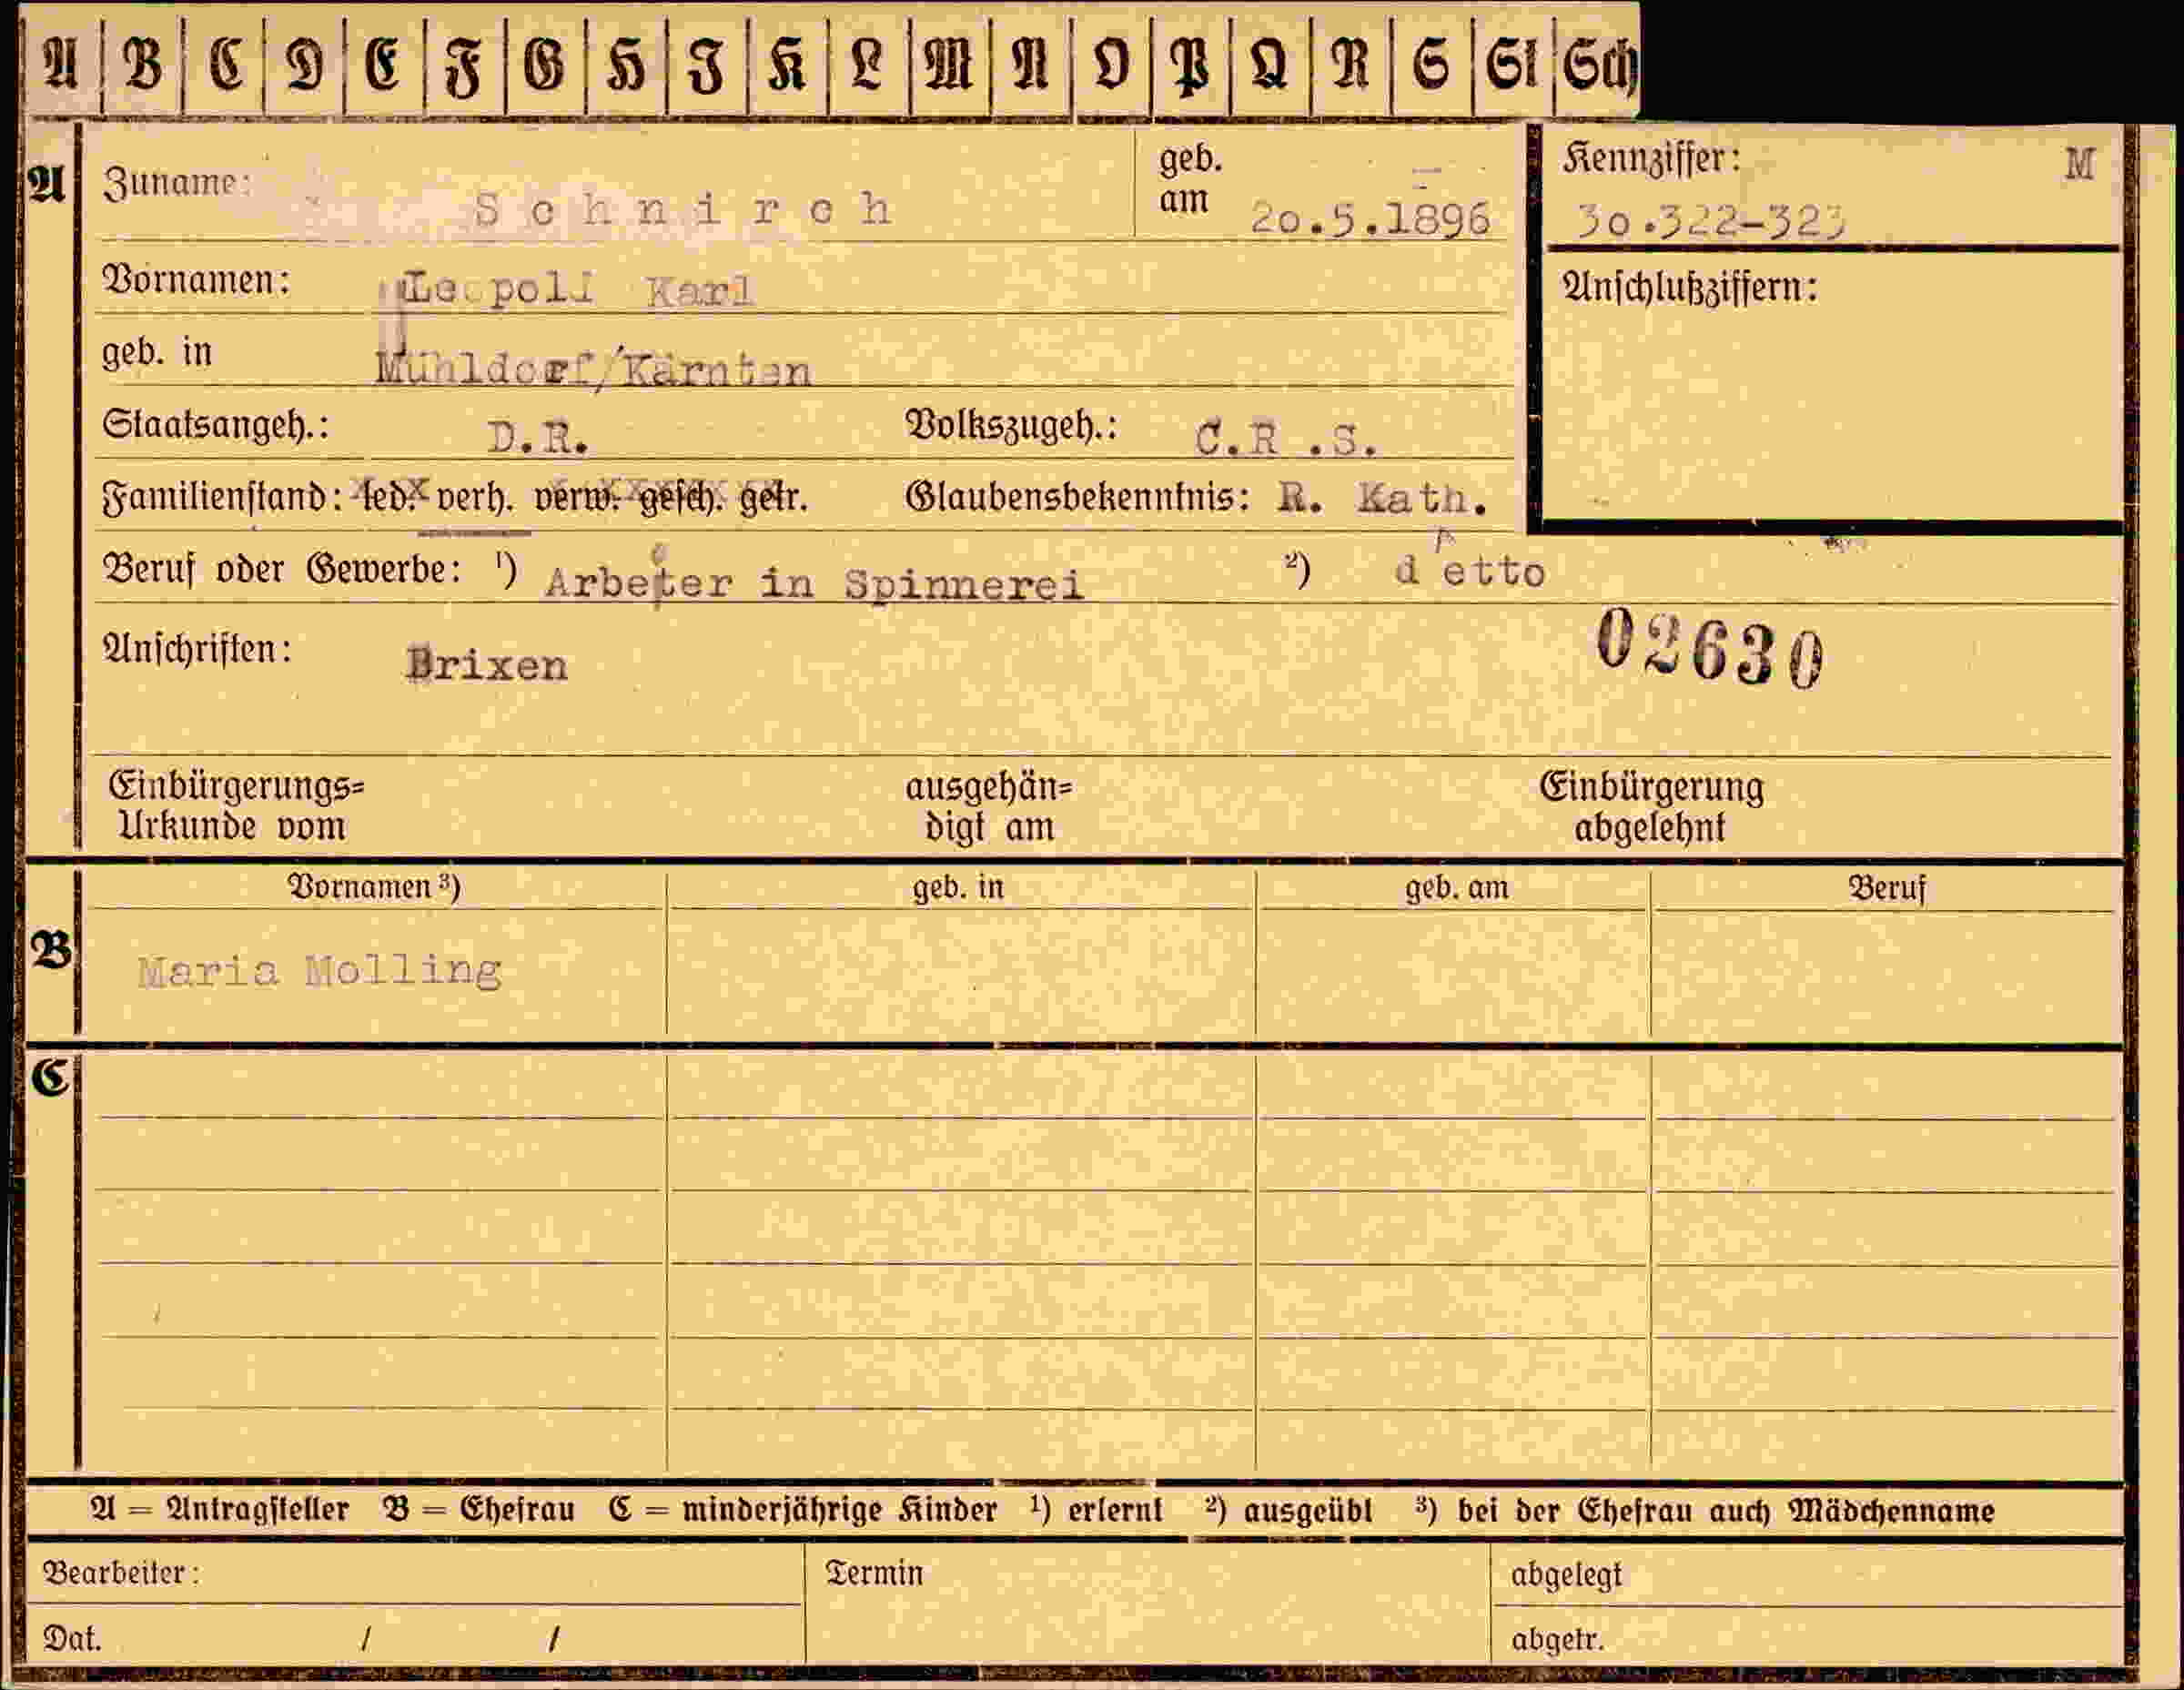 A B C D E F G H I K L M N O P Q R S St Sch
A Zuname: Schnirch geb. am 20.5.1896 Kennziffer: M
30.322-323
Vornamen: Leopold Karl Anschlußziffern:
geb. in Mühldorf/Kärnten
Staatsangeh.: D.R. Volkszugeh.: C.R .S.
Familienstand: led. verh. verw. gesch. getr. Glaubensbekenntnis: R. Kath.
Beruf oder Gewerbe: 1) Arbeiter in Spinnerei 2) detto
Anschriften: Brixen 02630
Einbürgerungs= ausgehän= Einbürgerung
Urkunde vom digt am abgelehnt
B Vornamen 3) geb. in geb. am Beruf
Maria Molling
C
A = Antragsteller B = Ehefrau C = minderjährige Kinder 1) erlernt 2) ausgeübt 3) bei der Ehefrau auch Mädchenname
Bearbeiter: Termin abgelegt
Dat. / / abgetr.